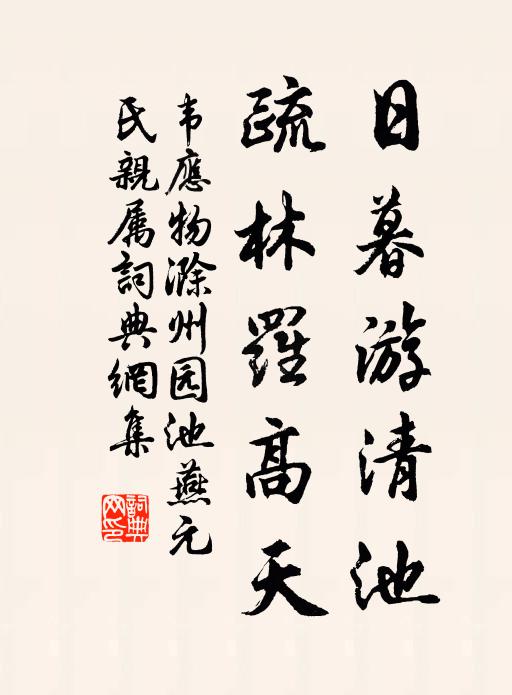 日暮游清池
疏林羅高天
韦應物滁州园池燕元
氏親属詞典網集
詞典
网印